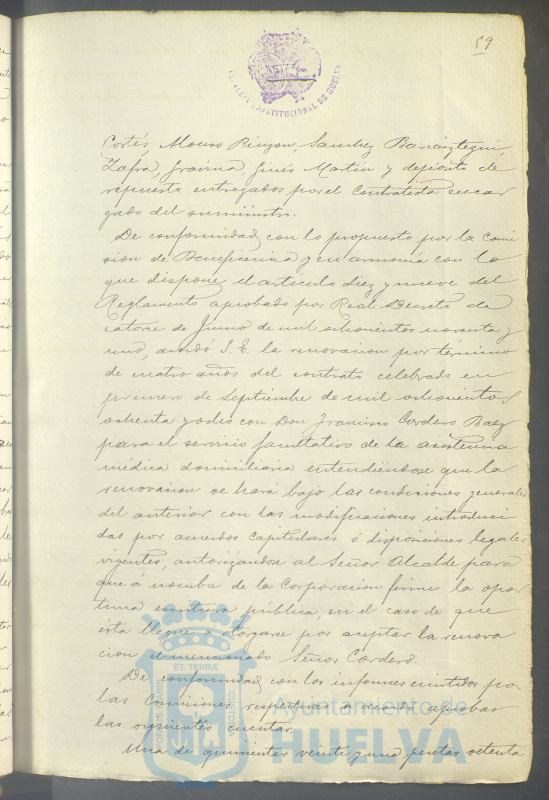 59
CONSTITUCIONAL DE HUELVA
Cortés, Alonso Pinzon, Sanchez Barcaiztegui
Zafra, Gravina, Ginés Martin y depósito de
repuesto entregados por el Contratista encar
gado del suministro.
De conformidad con lo propuesto por la Comi
sion de Beneficencia y en armonía con lo
que dispone el articulo diez y nueve del
Reglamento aprobado por Real Decreto de
catorce de Junio de mil ochocientos noventa y
uno, acordó S. E. la renovacion por término
de cuatro años del contrato celebrado en
primero de Septiembre de mil ochocientos
ochenta y ocho con Don Francisco Cordero Baez
para el servicio facultativo de la asistencia
médica domiciliaria entendiéndose que la
renovacion se hará bajo las condiciones generales
del anterior con las modificaciones introduci
das por acuerdos capitulares ó disposiciones legales
vigentes, autorizandose al Señor Alcalde para
que á nombre de la Corporacion firme la opor
tuna escritura pública, en el caso de que
ésta llegue á otorgarse por aceptar la renova
cion el mencionado Señor Cordero.
De conformidad con los informes emitidos por
las Comisiones respectivas acordó aprobar
las siguientes cuentas.
Una de quinientas veinte y una pesetas setenta
PORTUS MARIS
ET TERRÆ
CUSTODIA
Ayuntamiento de
HUELVA